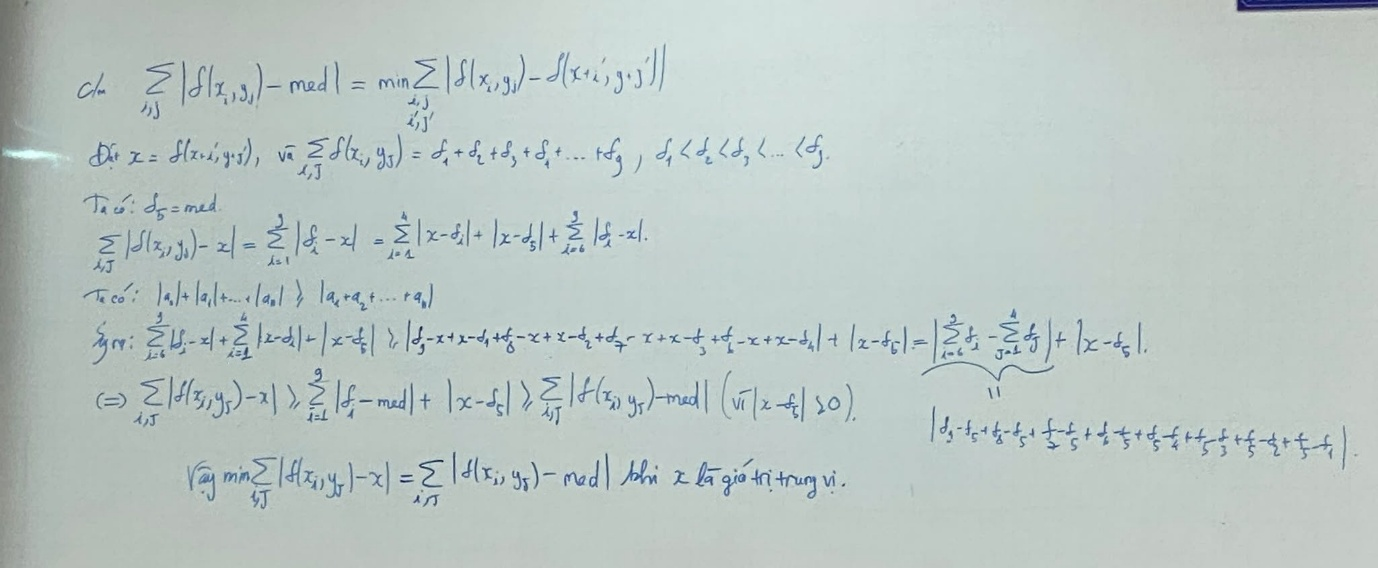 c/m $\sum_{i,j} |f(x_i, y_j) - med| = \min_{i',j'} \sum_{i,j} |f(x_i, y_j) - f(x+i', y+j')|$
Đặt $x = f(x+i', y+j')$, và $\sum_{i,j} f(x_i, y_j) = f_1 + f_2 + f_3 + f_4 + \ldots + f_9$, $f_1 < f_2 < f_3 < \ldots < f_9$.
Ta có: $f_5 = med$.
$\sum_{i,j} |f(x_i, y_j) - x| = \sum_{i=1}^{9} |f_i - x| = \sum_{i=1}^{4} |x - f_i| + |x - f_5| + \sum_{i=6}^{9} |f_i - x|$.
Ta có: $|a_1| + |a_2| + \ldots + |a_n| \geqslant |a_1 + a_2 + \ldots + a_n|$
Suy ra: $\sum_{i=6}^{9} |f_i - x| + \sum_{i=1}^{4} |x - f_i| + |x - f_5| \geqslant |f_9 - x + x - f_1 + f_8 - x + x - f_2 + f_7 - x + x - f_3 + f_6 - x + x - f_4| + |x - f_5| = |\sum_{i=6}^{9} f_i - \sum_{j=1}^{4} f_j| + |x - f_5|$.
(=) $\sum_{i,j} |f(x_i, y_j) - x| \geqslant \sum_{i=1}^{9} |f_i - med| + |x - f_5| \geqslant \sum_{i,j} |f(x_i, y_j) - med|$ (vì $|x - f_5| \geqslant 0$).
$|f_9 - f_5 + f_8 - f_5 + f_7 - f_5 + f_6 - f_5 + f_5 - f_4 + f_5 - f_3 + f_5 - f_2 + f_5 - f_1|$.
Vậy $\min \sum_{i,j} |f(x_i, y_j) - x| = \sum_{i,j} |f(x_i, y_j) - med|$ khi x là giá trị trung vị.